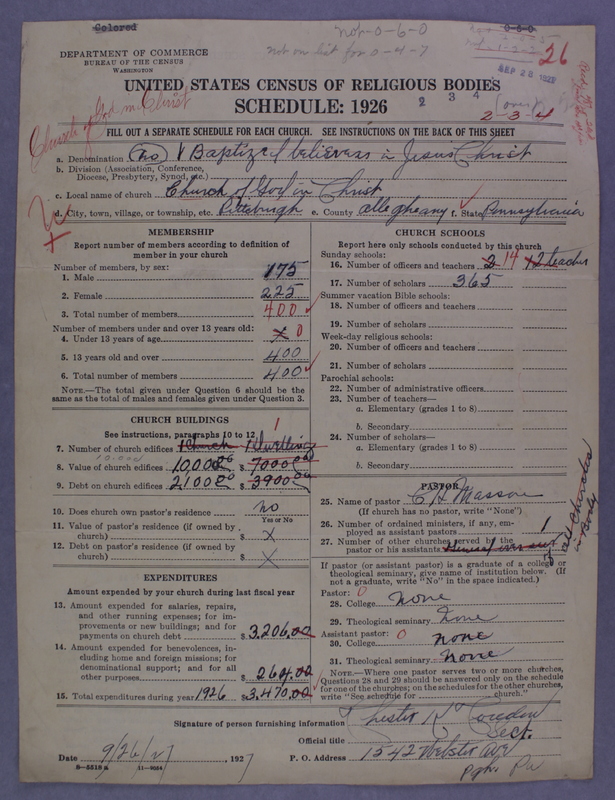 Colored
not-0-6-0
not on list for 0-4-7
0-6-0
SEP 28 1927
26
DEPARTMENT OF COMMERCE
BUREAU OF THE CENSUS
WASHINGTON
UNITED STATES CENSUS OF RELIGIOUS BODIES
SCHEDULE: 1926
2 3 4
(over)
2-3-4
Church of God in Christ
FILL OUT A SEPARATE SCHEDULE FOR EACH CHURCH. SEE INSTRUCTIONS ON THE BACK OF THIS SHEET
a. Denomination (no) Baptized believers in Jesus Christ
b. Division (Association, Conference, Diocese, Presbytery, Synod, etc.)
c. Local name of church Church of God in Christ
d. City, town, village, or township, etc. Pittsburgh e. County Allegheany f. State Pennsylvania
MEMBERSHIP
Report number of members according to definition of
member in your church
Number of members, by sex:
1. Male 175
2. Female 225
3. Total number of members 400
Number of members under and over 13 years old:
4. Under 13 years of age x 0
5. 13 years old and over 400
6. Total number of members 400
NOTE.—The total given under Question 6 should be the
same as the total of males and females given under Question 3.
CHURCH BUILDINGS
See instructions, paragraphs 10 to 12
1
7. Number of church edifices 1 Church 1 Dwelling
10,000
8. Value of church edifices 10000 00 $ 7000 00
9. Debt on church edifices 2100 00 $ 3900 00
10. Does church own pastor's residence? no
Yes or No
11. Value of pastor's residence (if owned by
church) $ X
12. Debt on pastor's residence (if owned by
church) $ X
EXPENDITURES
Amount expended by your church during last fiscal year
13. Amount expended for salaries, repairs,
and other running expenses; for im-
provements or new buildings; and for
payments on church debt $3,206.00
14. Amount expended for benevolences, in-
cluding home and foreign missions; for
denominational support; and for all
other purposes 264.00
15. Total expenditures during year 1926 $3,470.00
CHURCH SCHOOLS
Report here only schools conducted by this church
Sunday schools:
16. Number of officers and teachers 2 14 12 teacher
17. Number of scholars 365
Summer vacation Bible schools:
18. Number of officers and teachers
19. Number of scholars
Week-day religious schools:
20. Number of officers and teachers
21. Number of scholars
Parochial schools:
22. Number of administrative officers
23. Number of teachers—
a. Elementary (grades 1 to 8)
b. Secondary
24. Number of scholars—
a. Elementary (grades 1 to 8)
b. Secondary
PASTOR
25. Name of pastor C H Masson
(If church has no pastor, write "None")
26. Number of ordained ministers, if any, em-
ployed as assistant pastors 1
27. Number of other churches served by the
pastor or his assistants
all churches in Body
If pastor (or assistant pastor) is a graduate of a college or
theological seminary, give name of institution below. (If
not a graduate, write "No" in the space indicated.)
Pastor: 0
28. College None
29. Theological seminary none
Assistant pastor: 0
30. College none
31. Theological seminary none
NOTE.—Where one pastor serves two or more churches,
Questions 28 and 29 should be answered only on the schedule
for one of the churches; on the schedules for the other churches,
write "See schedule for church."
Signature of person furnishing information Chester R
Official title Sect.
Date 9/26/27, 1927 P. O. Address 1542 Webster Ave
Pgh. Pa
8—5518a 11—9564